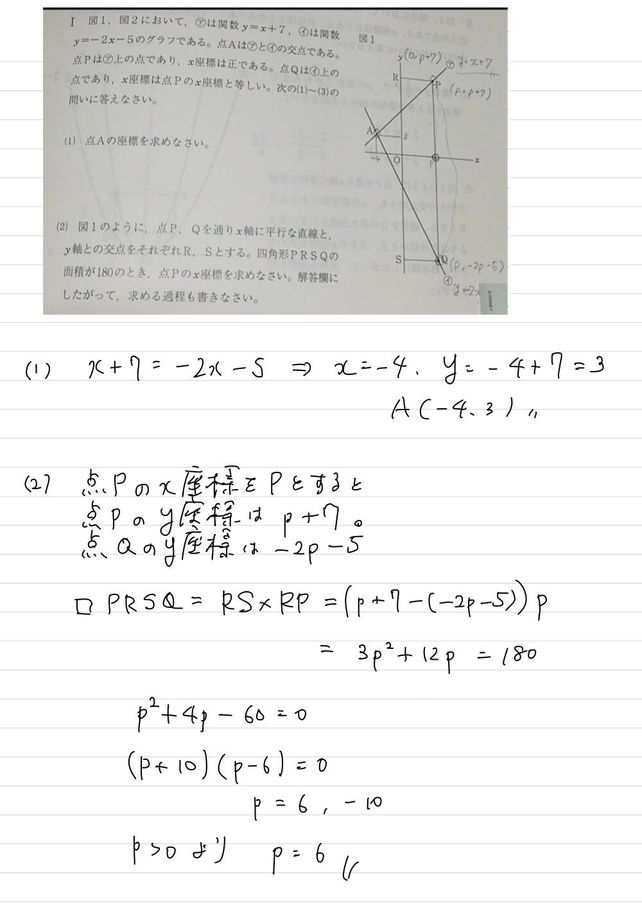 I 図1，図2において，㋐は関数 y=x+7，㋑は関数
y=-2x-5のグラフである。点Aは㋐と㋑の交点である。
点Pは㋐上の点であり，x座標は正である。点Qは㋑上の
点であり，x座標は点Pのx座標と等しい。次の(1)～(3)の
問いに答えなさい。
(1) 点Aの座標を求めなさい。
(2) 図1のように，点P，Qを通りx軸に平行な直線と，
y軸との交点をそれぞれR，Sとする。四角形PRSQの
面積が180のとき，点Pのx座標を求めなさい。解答欄に
したがって，求める過程も書きなさい。
図1
y(0,p+7) ㋐ y=x+7
R P
(p,p+7)
A 3
-4 O P x
S Q (p,-2p-5)
㋑
y=-2x
(1) x+7=-2x-5 ⇒ x=-4. y=-4+7=3
A(-4.3)〃
(2) 点Pのx座標をPとすると
点Pのy座標は p+7。
点Qのy座標は -2p-5
□PRSQ = RS×RP = (p+7-(-2p-5))p
= 3p²+12p = 180
p²+4p-60=0
(p+10)(p-6)=0
p=6, -10
p>0より p=6〃